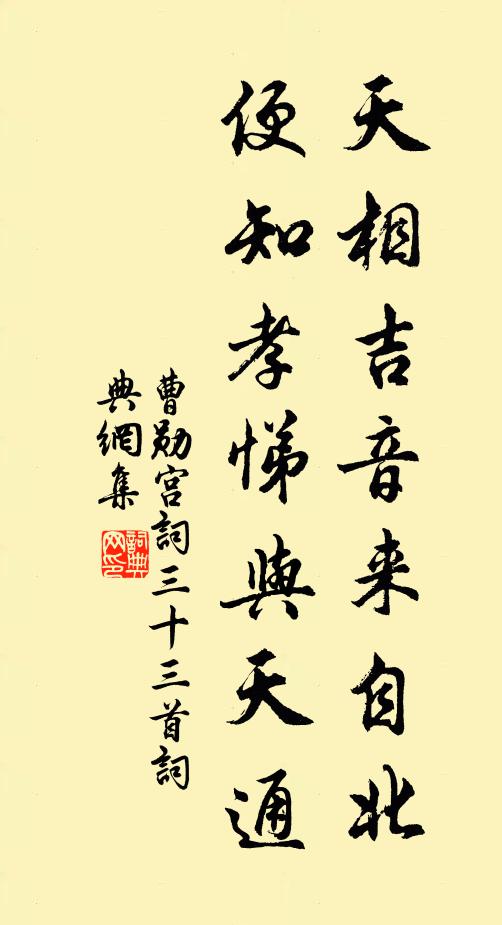 天相吉音来自北
便知孝悌與天通
曹勛宫詞三十三首詞
典網集
詞典网印